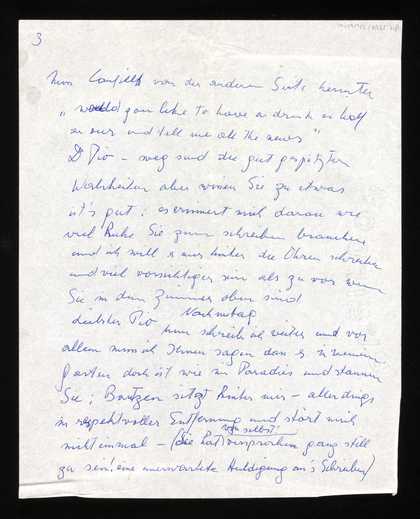 3
von der anderen Seite herunter
„ would you like to have a drink a half
an our and tell me all the news "
D Pio – weg sind die gut gespitzten
aber wenn Sie zu etwas
it's gut: es erinnert mich daran wie
viel Ruhe Sie zum schreiben brauchen
und ich will es mir hinter die Ohren schreiben
und viel vorsichtiger sein als zu vor wenn
Sie in dem Zimmer oben sind
Nachmittag
liebster Pio nun schreib ich weiter und vor
allem muss ich Ihnen sagen dass es in meinem
Garten doch ist wie im Paradies und staunen
Sie; Boutzen sitzt hinter mir – allerdings
in respektvoller Entfernung und stört mich
nicht einmal – (sie hat von selbst! versprochen ganz still
zu sein! eine unerwartete Huldigung an's Schreiben)